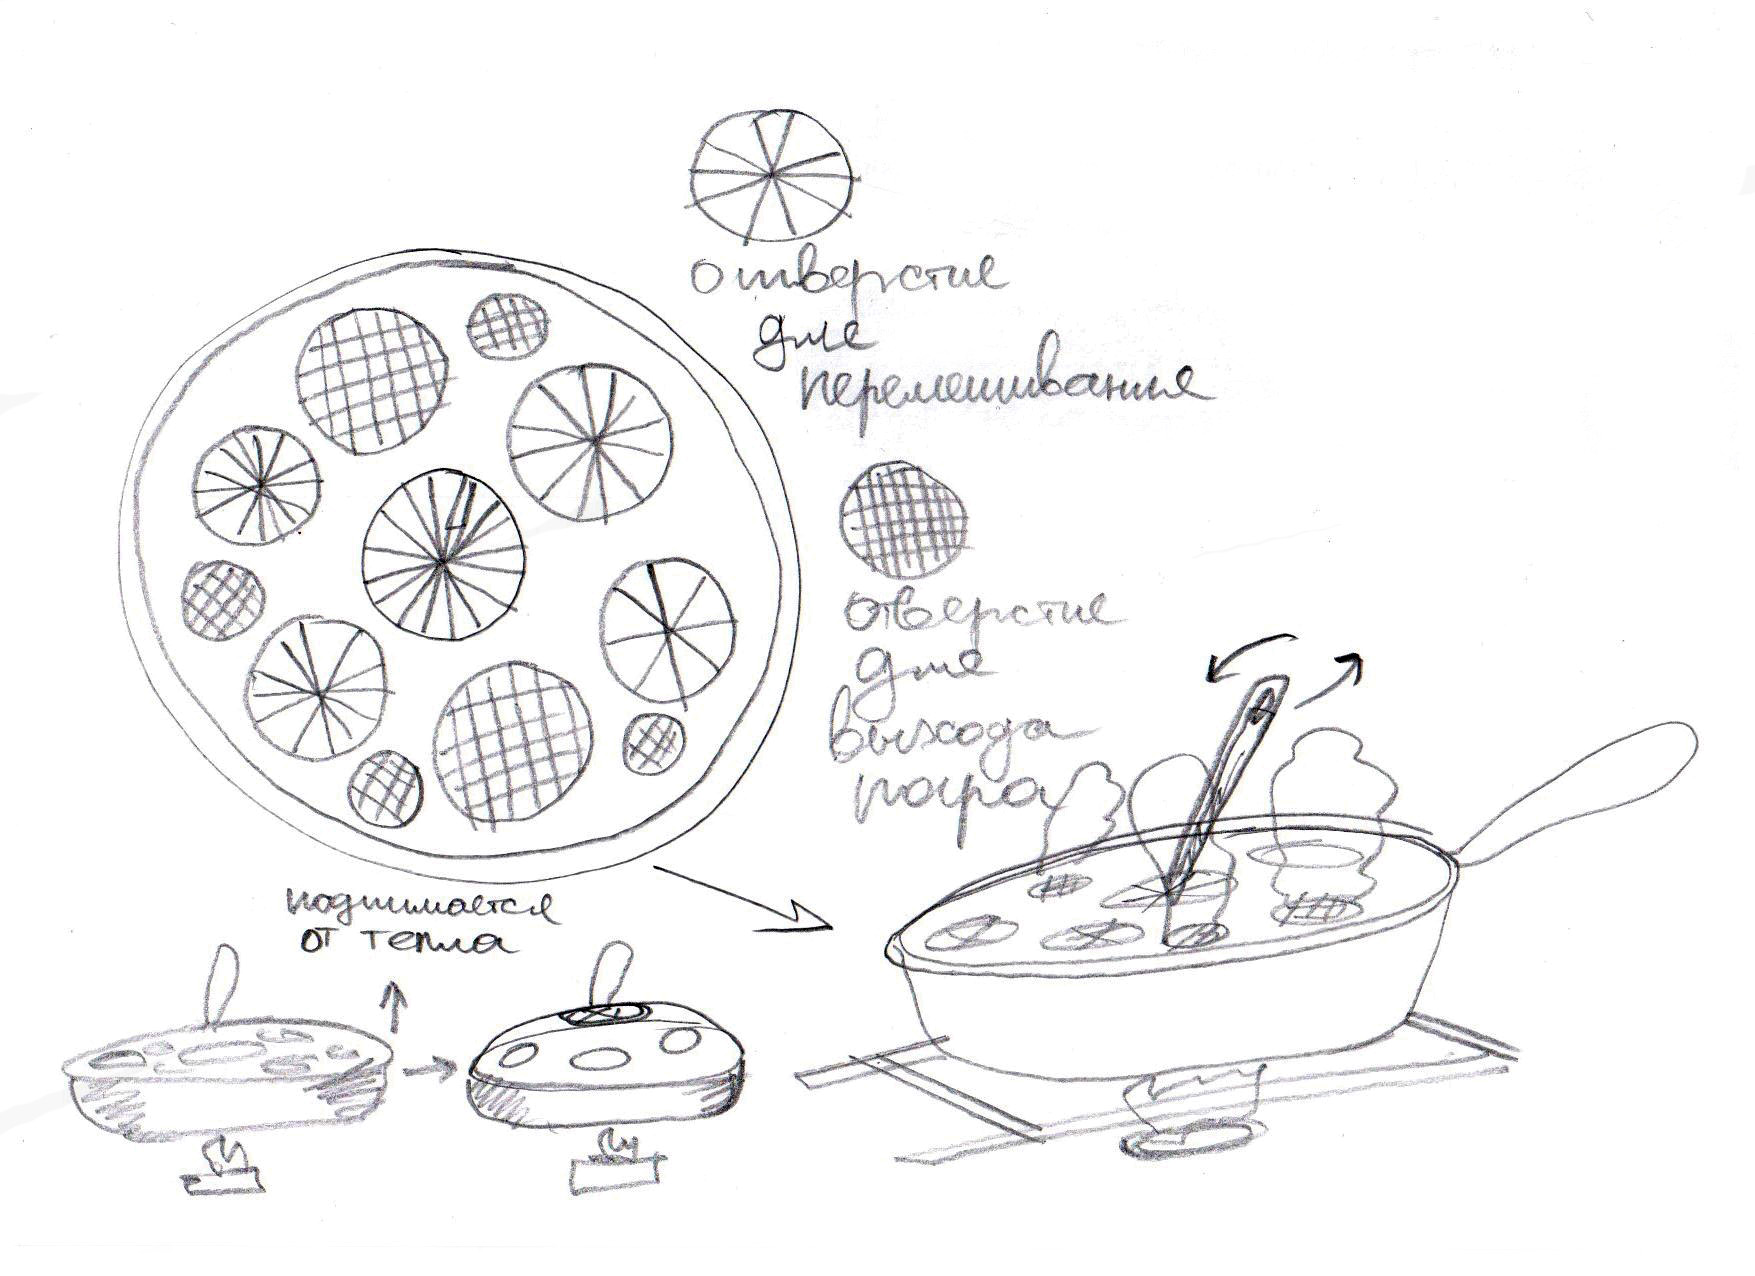 отверстие
для
перемешивания
отверстие
для
выхода
пара
поднимается
от тепла